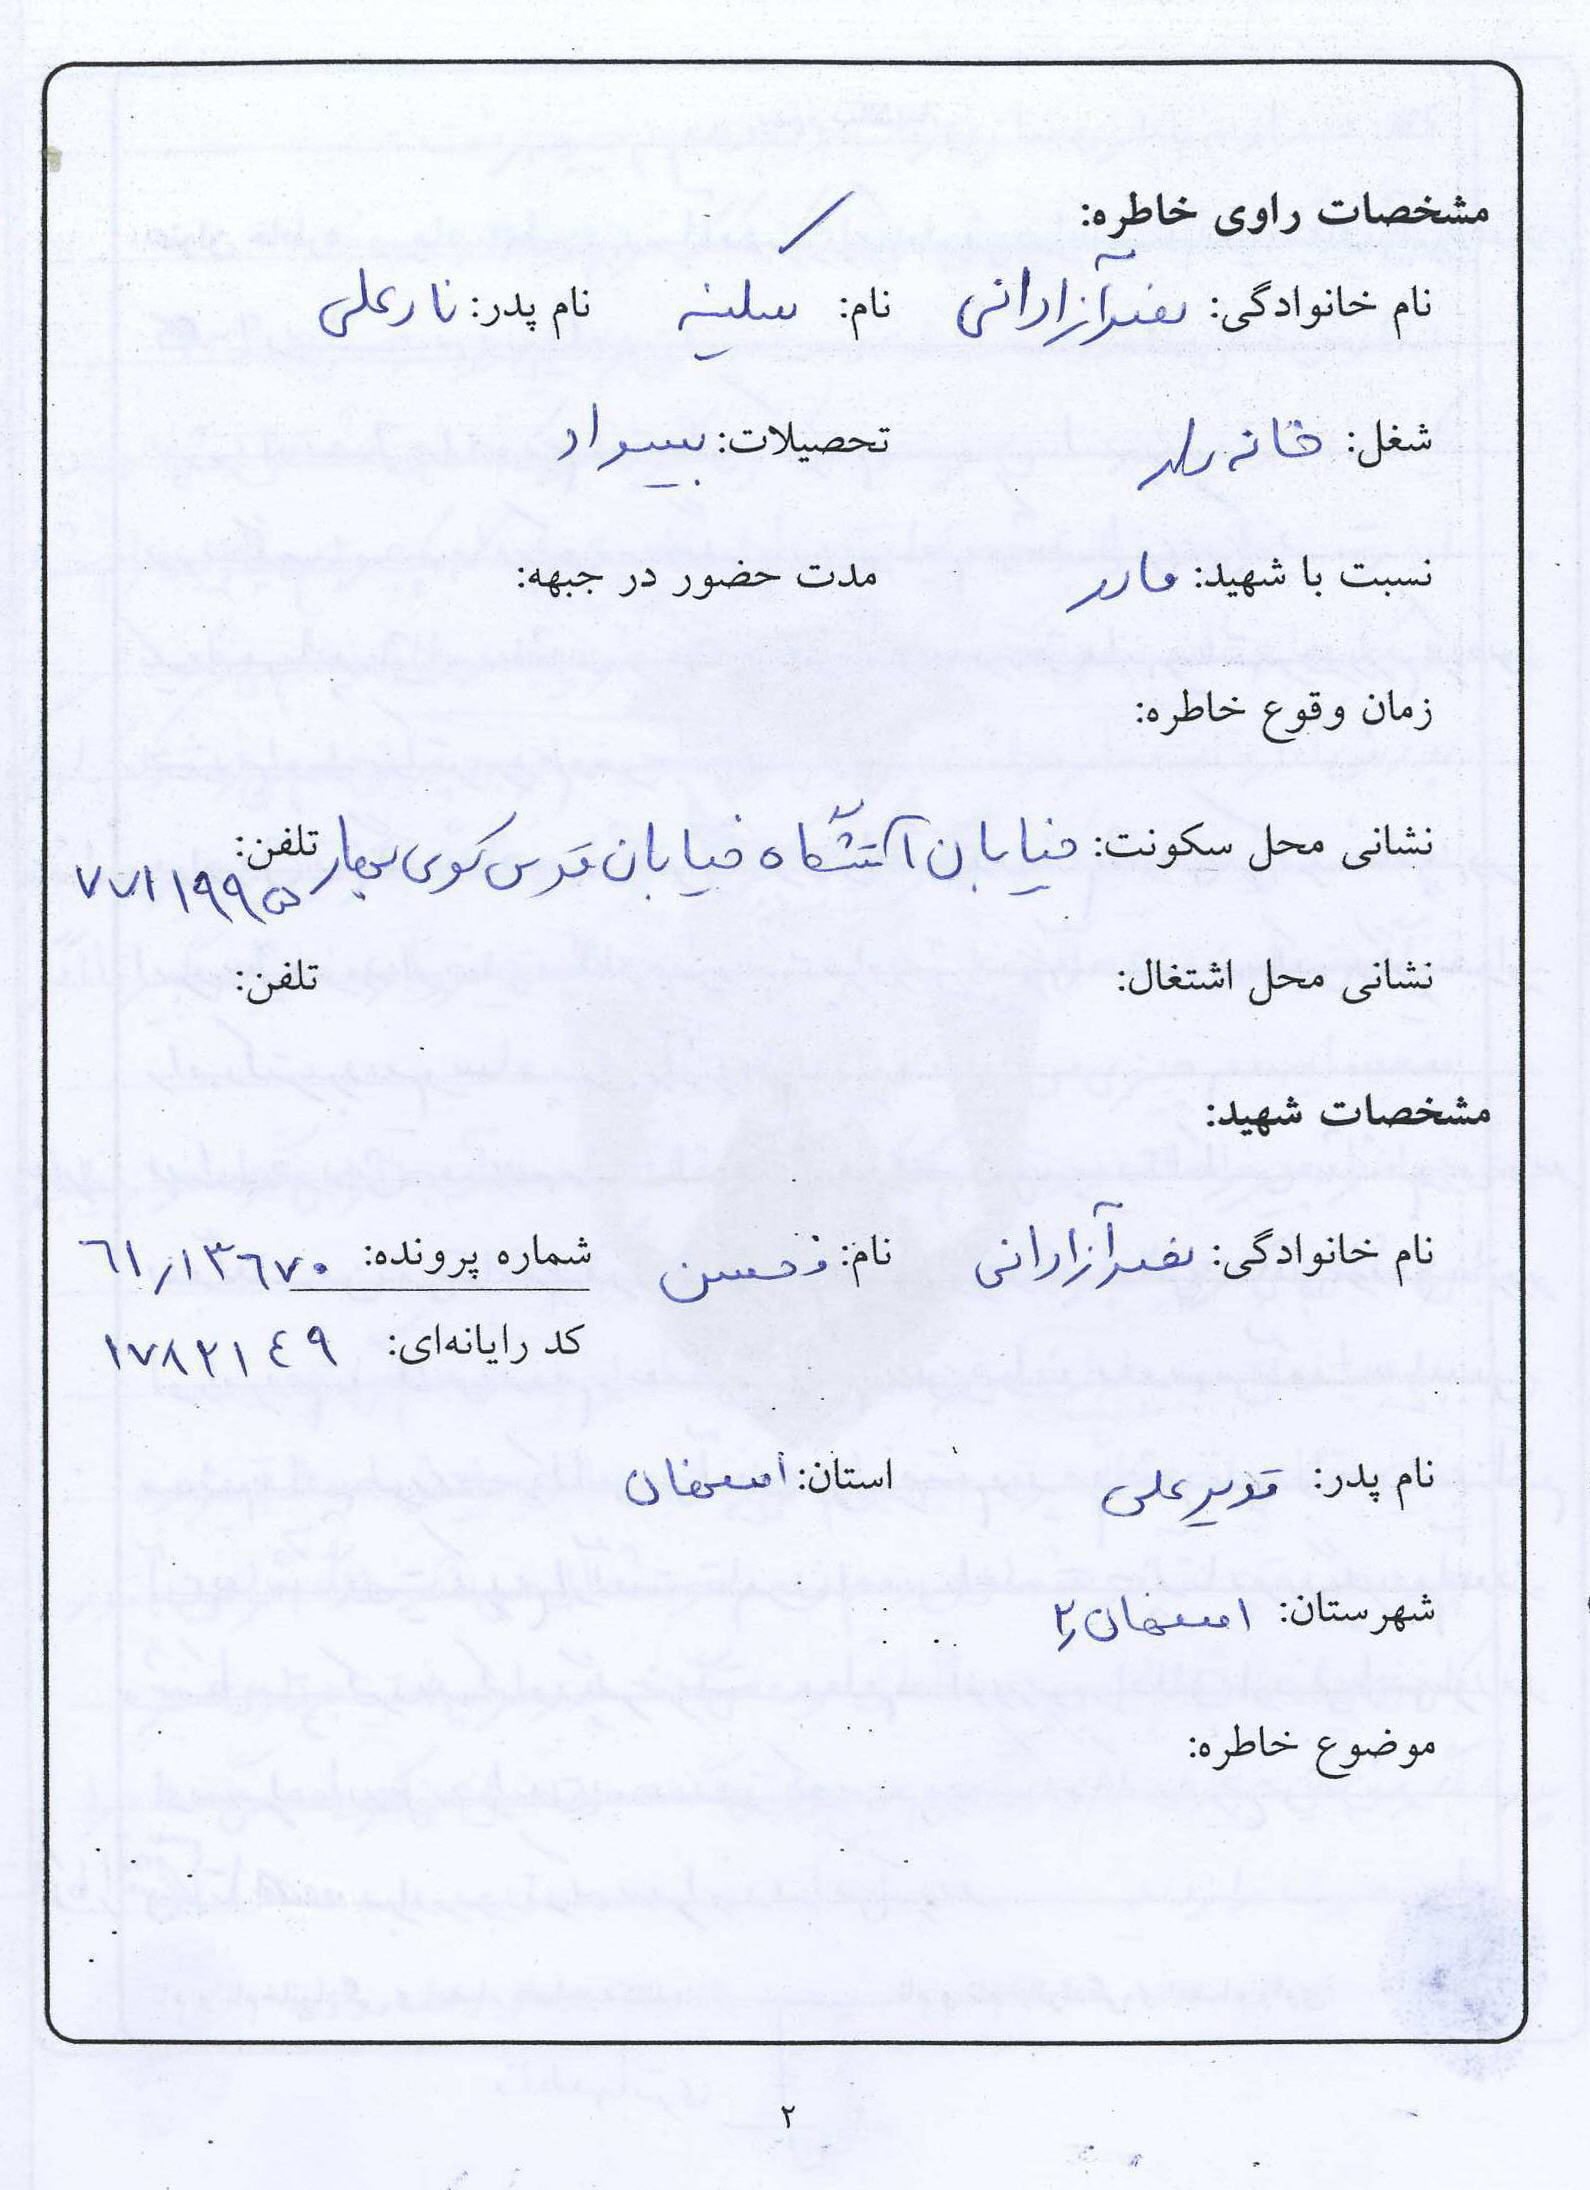 مشخصات راوی خاطره:
نام خانوادگی: نصر آزادانی نام: سکینه نام پدر: نارعلی
شغل: خانه دار تحصیلات: بیسواد
نسبت با شهید: مادر مدت حضور در جبهه:
زمان وقوع خاطره:
نشانی محل سکونت: خیابان آتشگاه خیابان قدس کوی بهار تلفن: ۷۷۱۱۹۹۵
نشانی محل اشتغال: تلفن:
مشخصات شهید:
نام خانوادگی: نصر آزادانی نام: محسن شماره پرونده: ۶۱/۱۳۶۷۰
کد رایانه‌ای: ۱۷۸۲۱۴۹
نام پدر: قدیرعلی استان: اصفهان
شهرستان: اصفهان ۲
موضوع خاطره:
۲